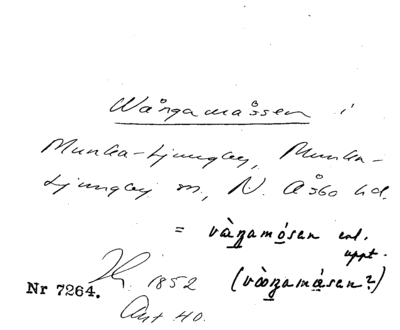 Wångamåssen i
Munka-Ljungby, Munka-
Ljungby sn., N. Åsbo hd.
= vàŋamósen enl.
uppt.
1852 (vàoŋamásen?)
Nr 7264.
Ant 40.